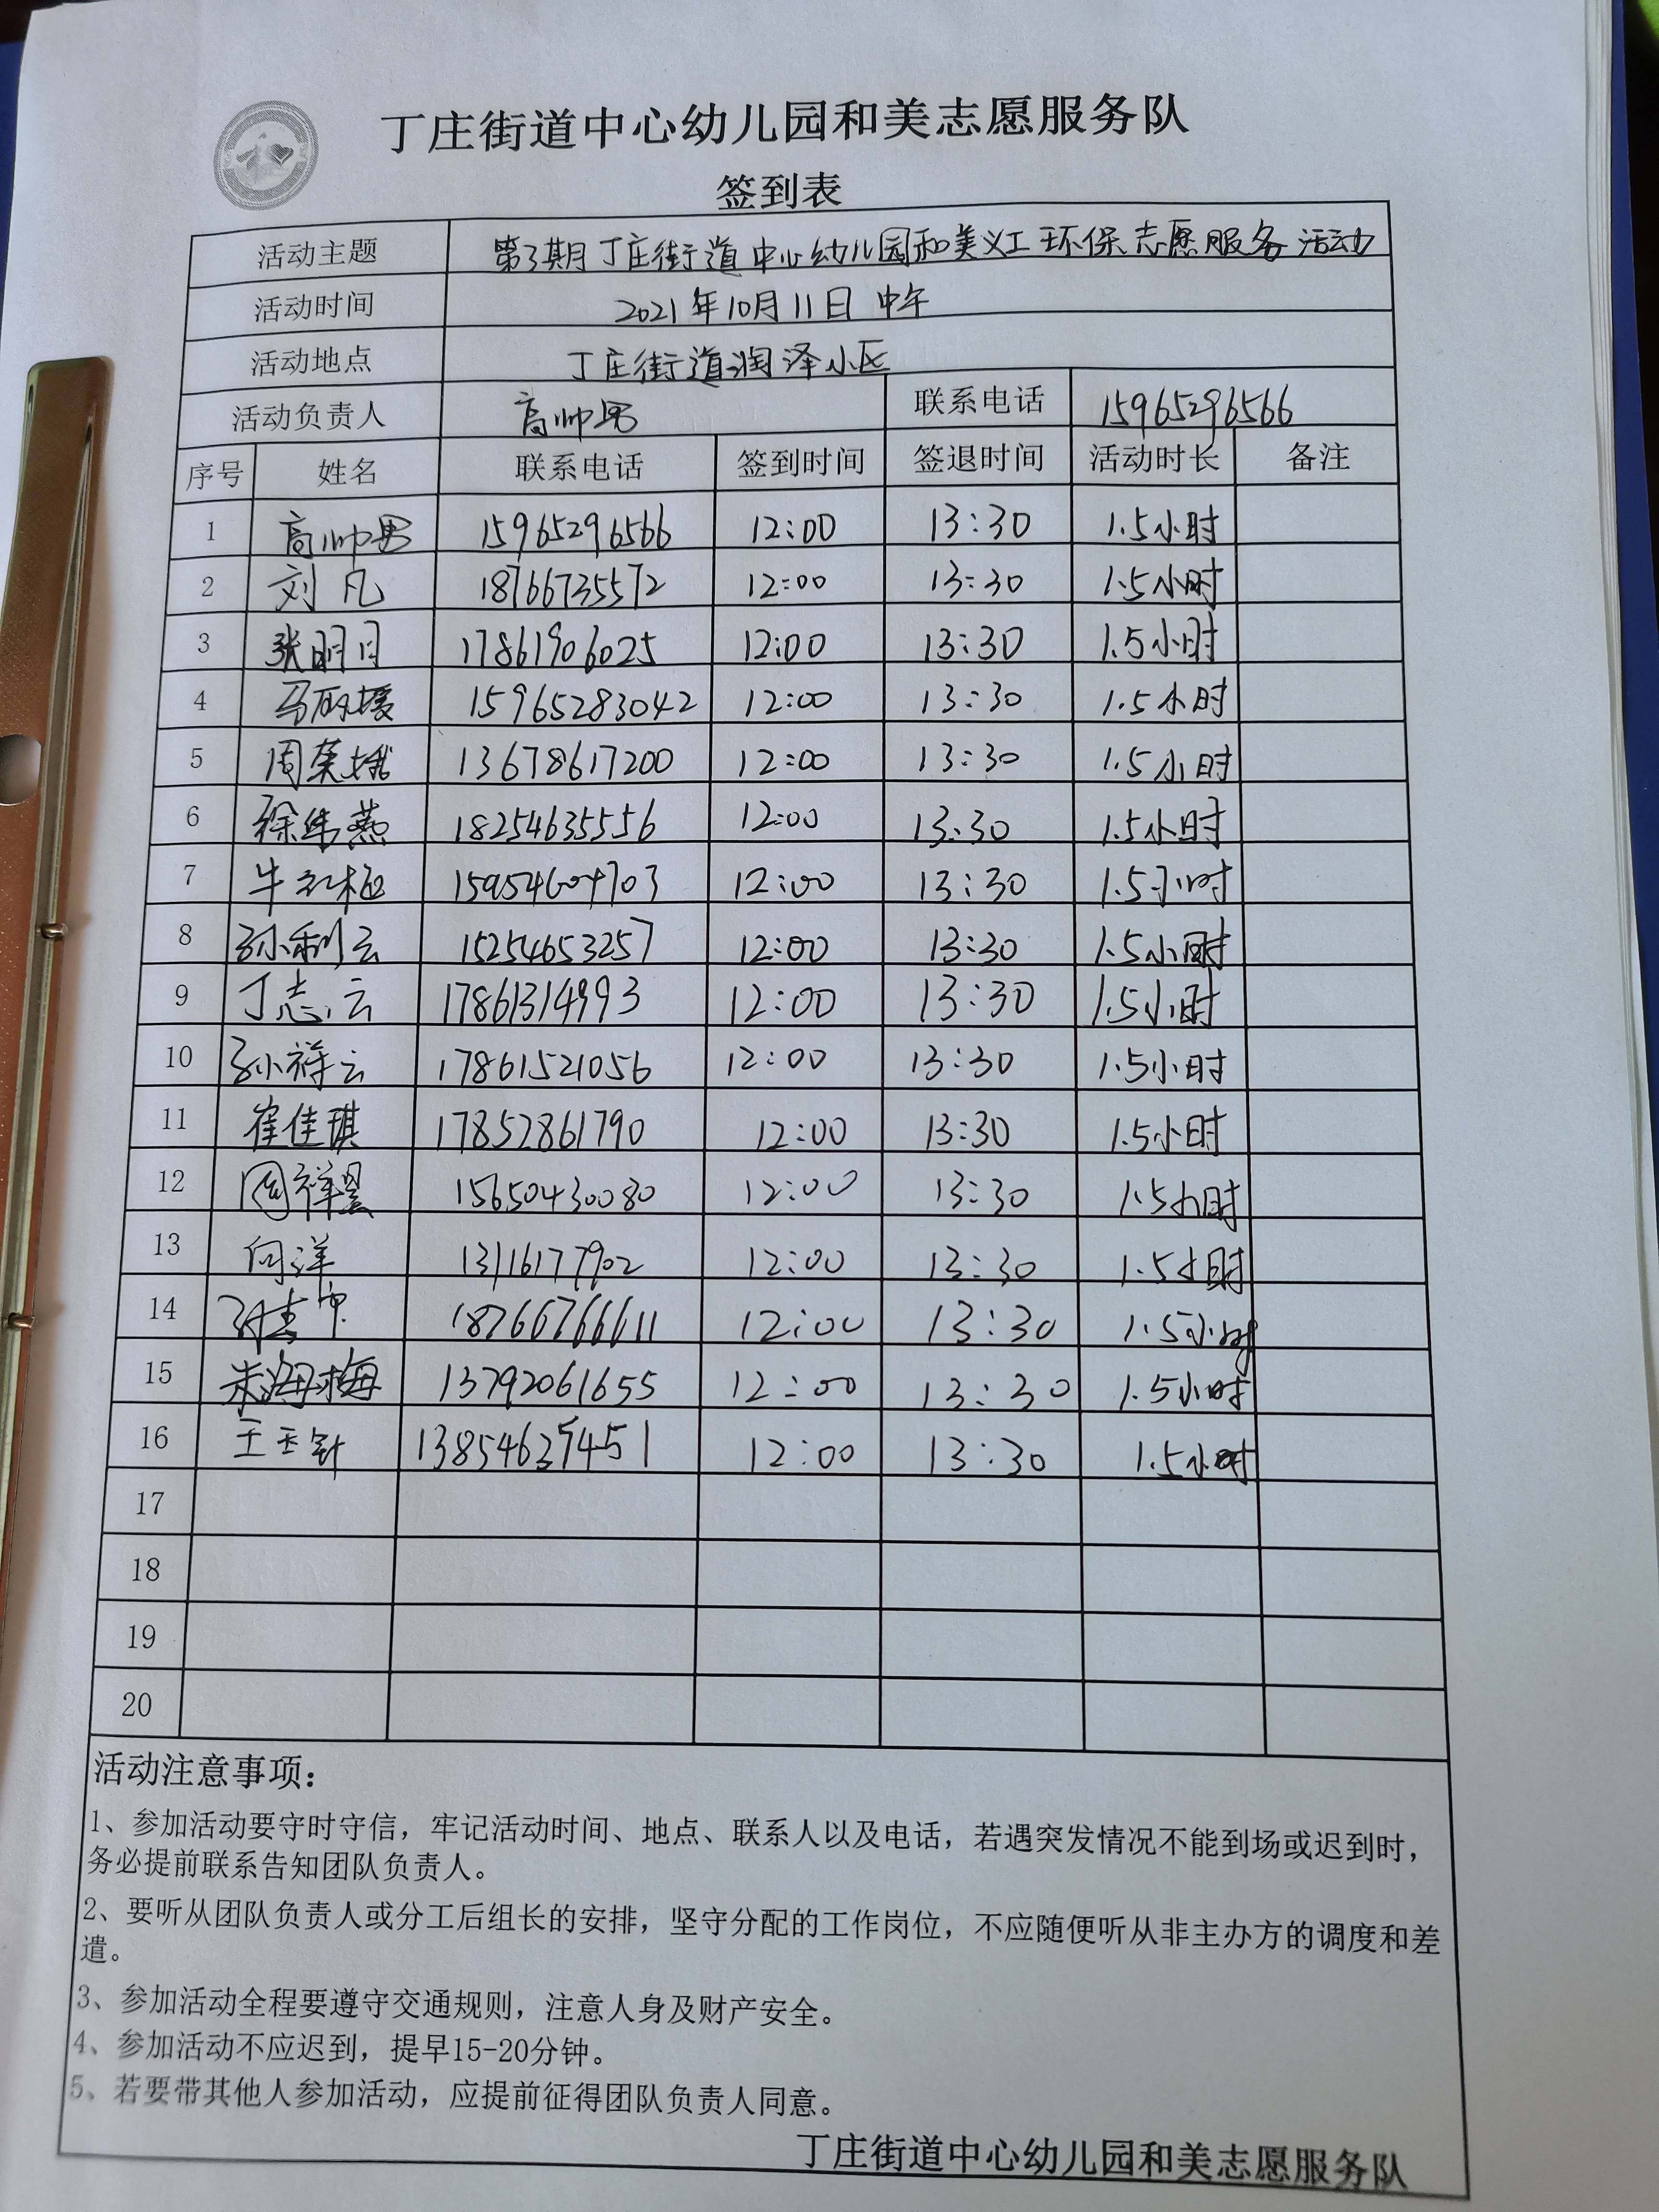 丁庄街道中心幼儿园和美志愿服务队
签到表
活动主题 第3期丁庄街道中心幼儿园和美义工环保志愿服务活动
活动时间 2021年10月11日 中午
活动地点 丁庄街道润泽小区
活动负责人 高帅男 联系电话 15965296566
序号 姓名 联系电话 签到时间 签退时间 活动时长 备注
1 高帅男 15965296566 12:00 13:30 1.5小时
2 刘凡 18766735572 12:00 13:30 1.5小时
3 张明月 17861906025 12:00 13:30 1.5小时
4 马丽媛 15965283042 12:00 13:30 1.5小时
5 周英娥 13678617200 12:00 13:30 1.5小时
6 徐纬燕 18254635556 12:00 13:30 1.5小时
7 12:00 13:30 1.5小时
8 孙利云 15254653257 12:00 13:30 1.5小时
9 丁志云 17861314993 12:00 13:30 1.5小时
10 孙祥云 17861521056 12:00 13:30 1.5小时
11 崔佳琪 17852861790 12:00 13:30 1.5小时
12 15650430080 12:00 13:30 1.5小时
13 向洋 13116177902 12:00 13:30 1.5小时
14 18766766611 12:00 13:30 1.5小时
15 朱海梅 13792061655 12:00 13:30 1.5小时
16 12:00 13:30 1.5小时
17
18
19
20
活动注意事项：
1、参加活动要守时守信，牢记活动时间、地点、联系人以及电话，若遇突发情况不能到场或迟到时，
务必提前联系告知团队负责人。
2、要听从团队负责人或分工后组长的安排，坚守分配的工作岗位，不应随便听从非主办方的调度和差
遣。
3、参加活动全程要遵守交通规则，注意人身及财产安全。
4、参加活动不应迟到，提早15-20分钟。
5、若要带其他人参加活动，应提前征得团队负责人同意。
丁庄街道中心幼儿园和美志愿服务队